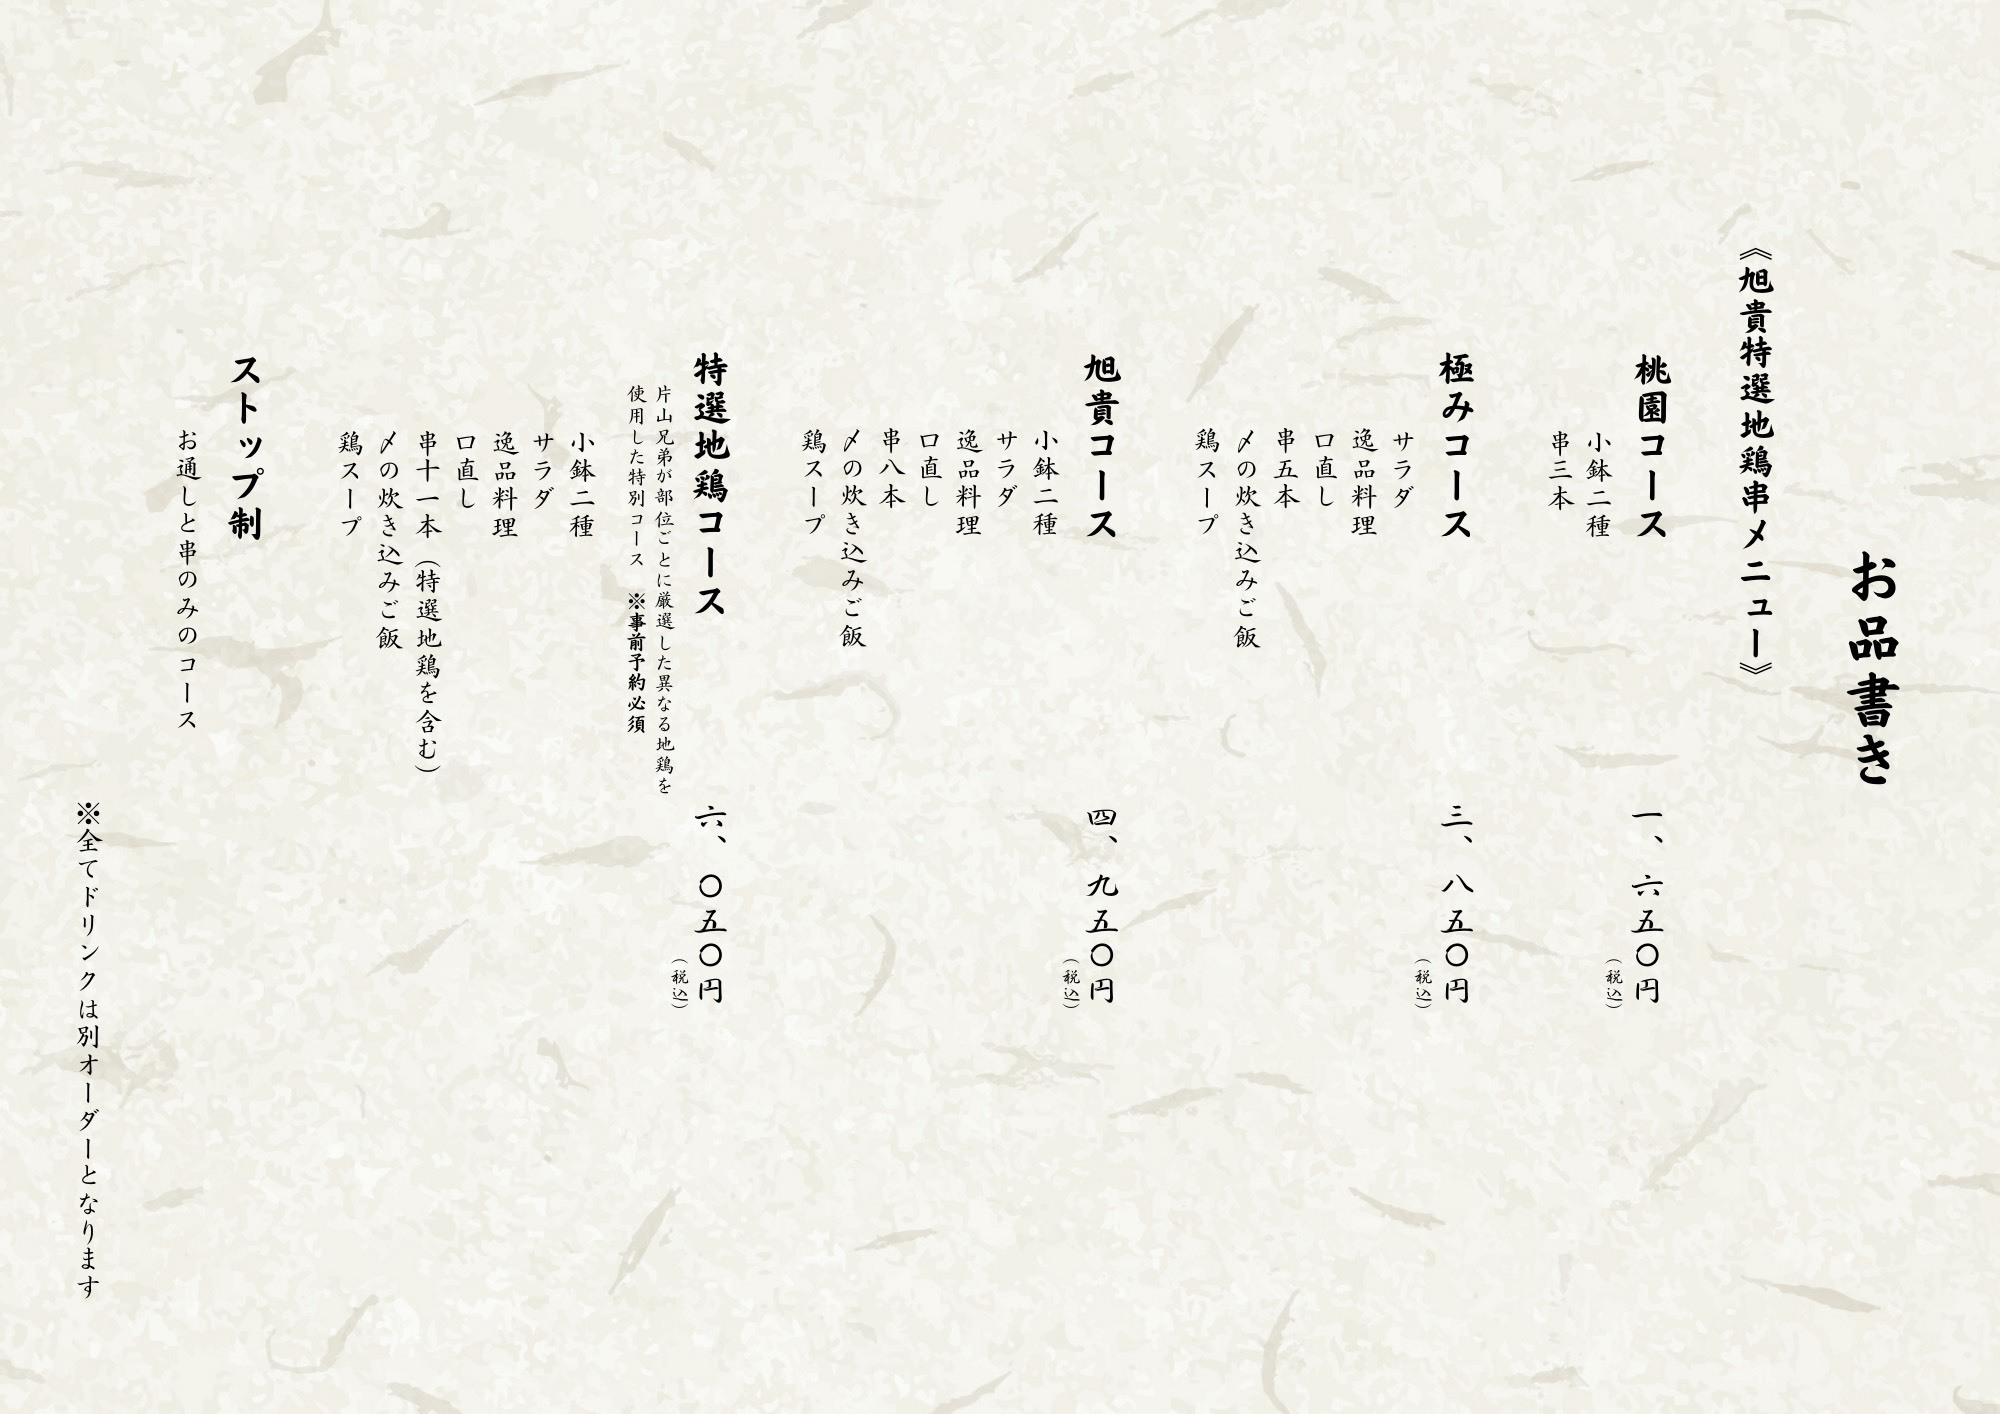 お品書き
《旭貴特選地鶏串メニュー》
桃園コース
一、六五〇円
(税込)
小鉢二種
串三本
極みコース
三、八五〇円
(税込)
サラダ
逸品料理
口直し
串五本
〆の炊き込みご飯
鶏スープ
旭貴コース
四、九五〇円
(税込)
小鉢二種
サラダ
逸品料理
口直し
串八本
〆の炊き込みご飯
鶏スープ
特選地鶏コース
六、〇五〇円
(税込)
片山兄弟が部位ごとに厳選した異なる地鶏を
使用した特別コース ※事前予約必須
小鉢二種
サラダ
逸品料理
口直し
串十一本(特選地鶏を含む)
〆の炊き込みご飯
鶏スープ
ストップ制
お通しと串のみのコース
※全てドリンクは別オーダーとなります